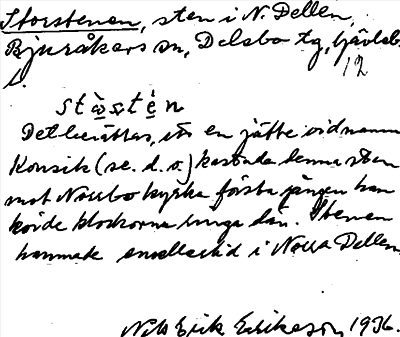 Storstenen, sten i N. Dellen,
Bjuråkers sn, Delsbo tg, Gävleb.
l. 12
Det berättas, att en jätte vid namn
Konsik (se. d. o.) kastade denna sten
mot Norrbo kyrka första gången han
hörde klockorna ringa där. Stenen
hamnade emellertid i Norra Dellen.
Nils Erik Eriksson 1936.